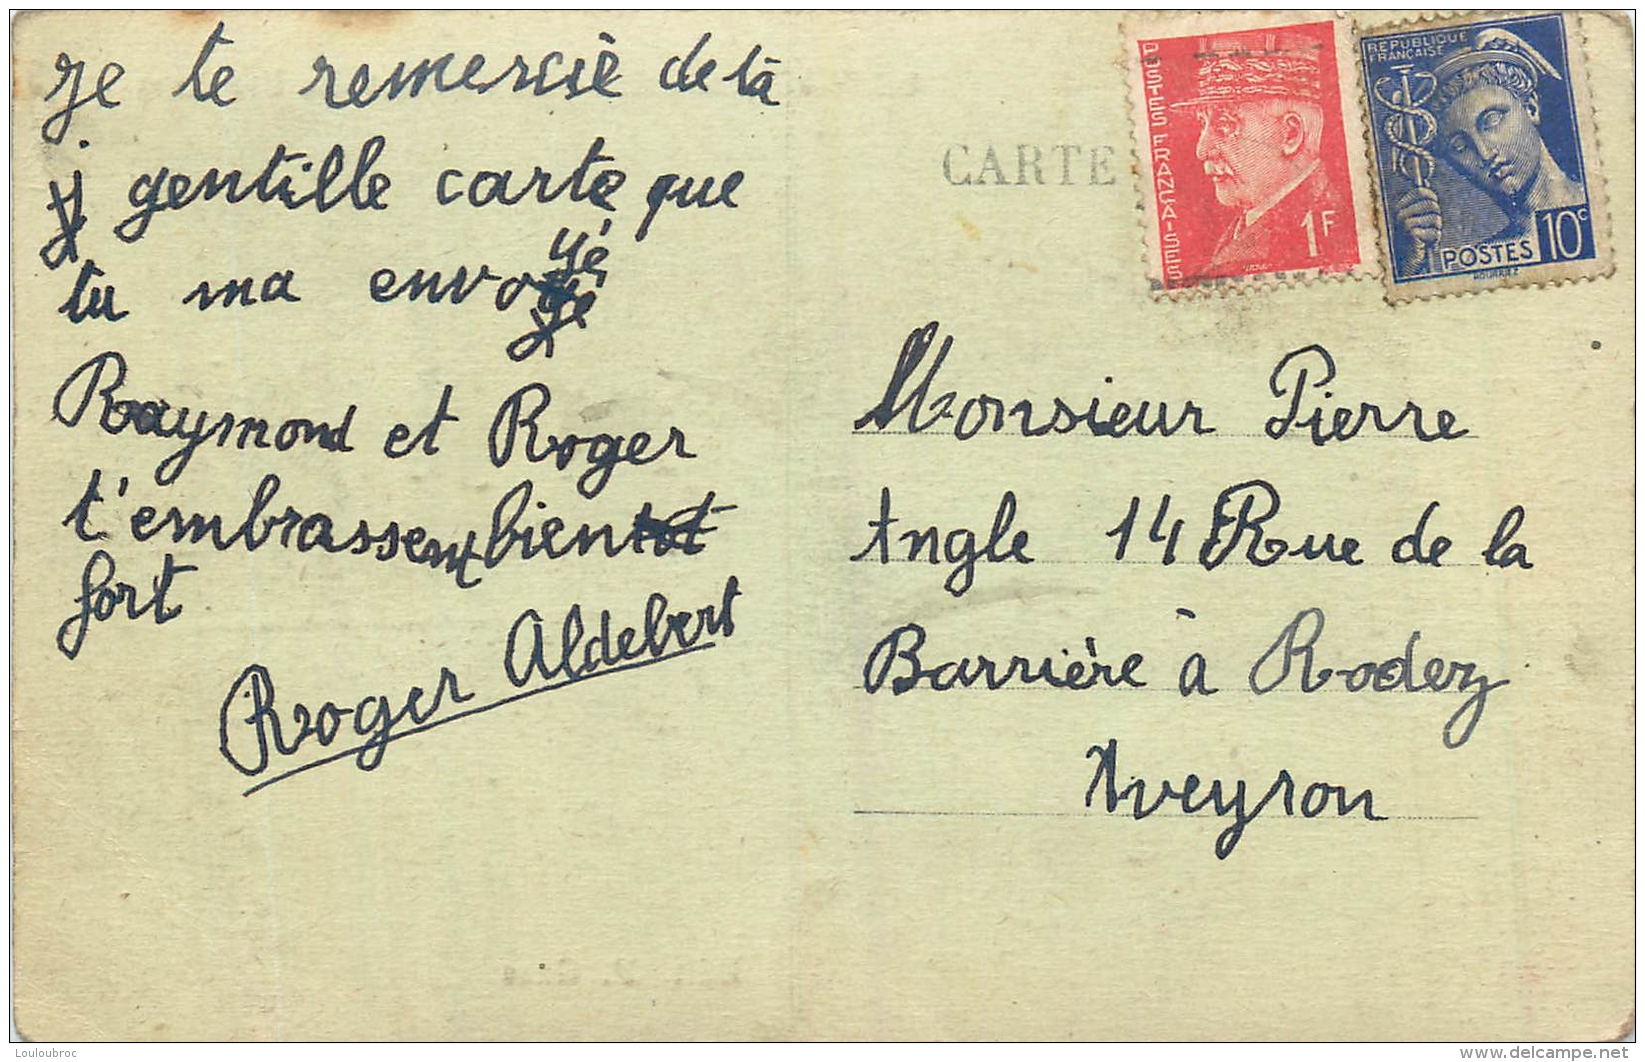 je te remercie de ta
gentille carte que
tu ma envoyé
Raymond et Roger
t'embrassent bien
fort
Roger Aldebert
CARTE
POSTES FRANÇAISES
1F
REPUBLIQUE
FRANÇAISE
POSTES 10c
Monsieur Pierre
Angle 14 Rue de la
Barrière à Rodez
Aveyron
Louloubroc
delcampe.net